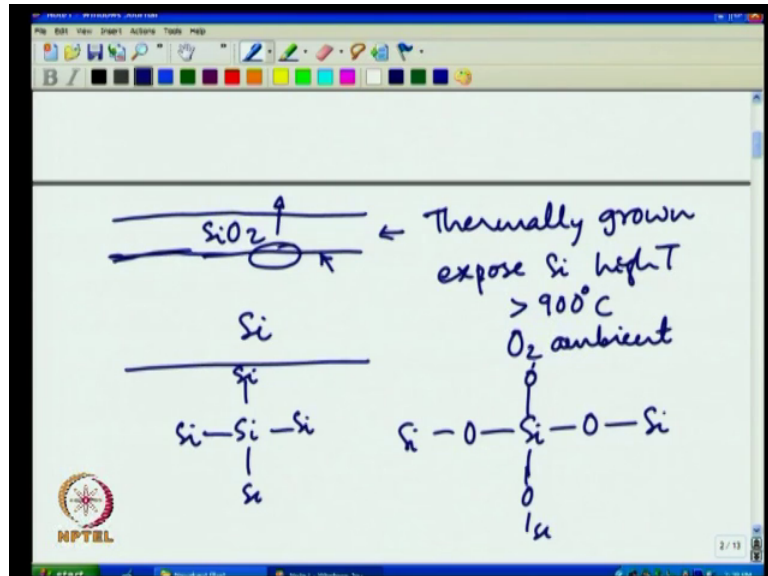 Note1 - Windows Journal
File Edit View Insert Actions Tools Help
B I
SiO2
← Thermally grown
expose Si high T
> 900°C
O2 ambient
Si
Si
Si—Si—Si
Si
O
Si—O—Si—O—Si
O
Si
NPTEL
2 / 13
start